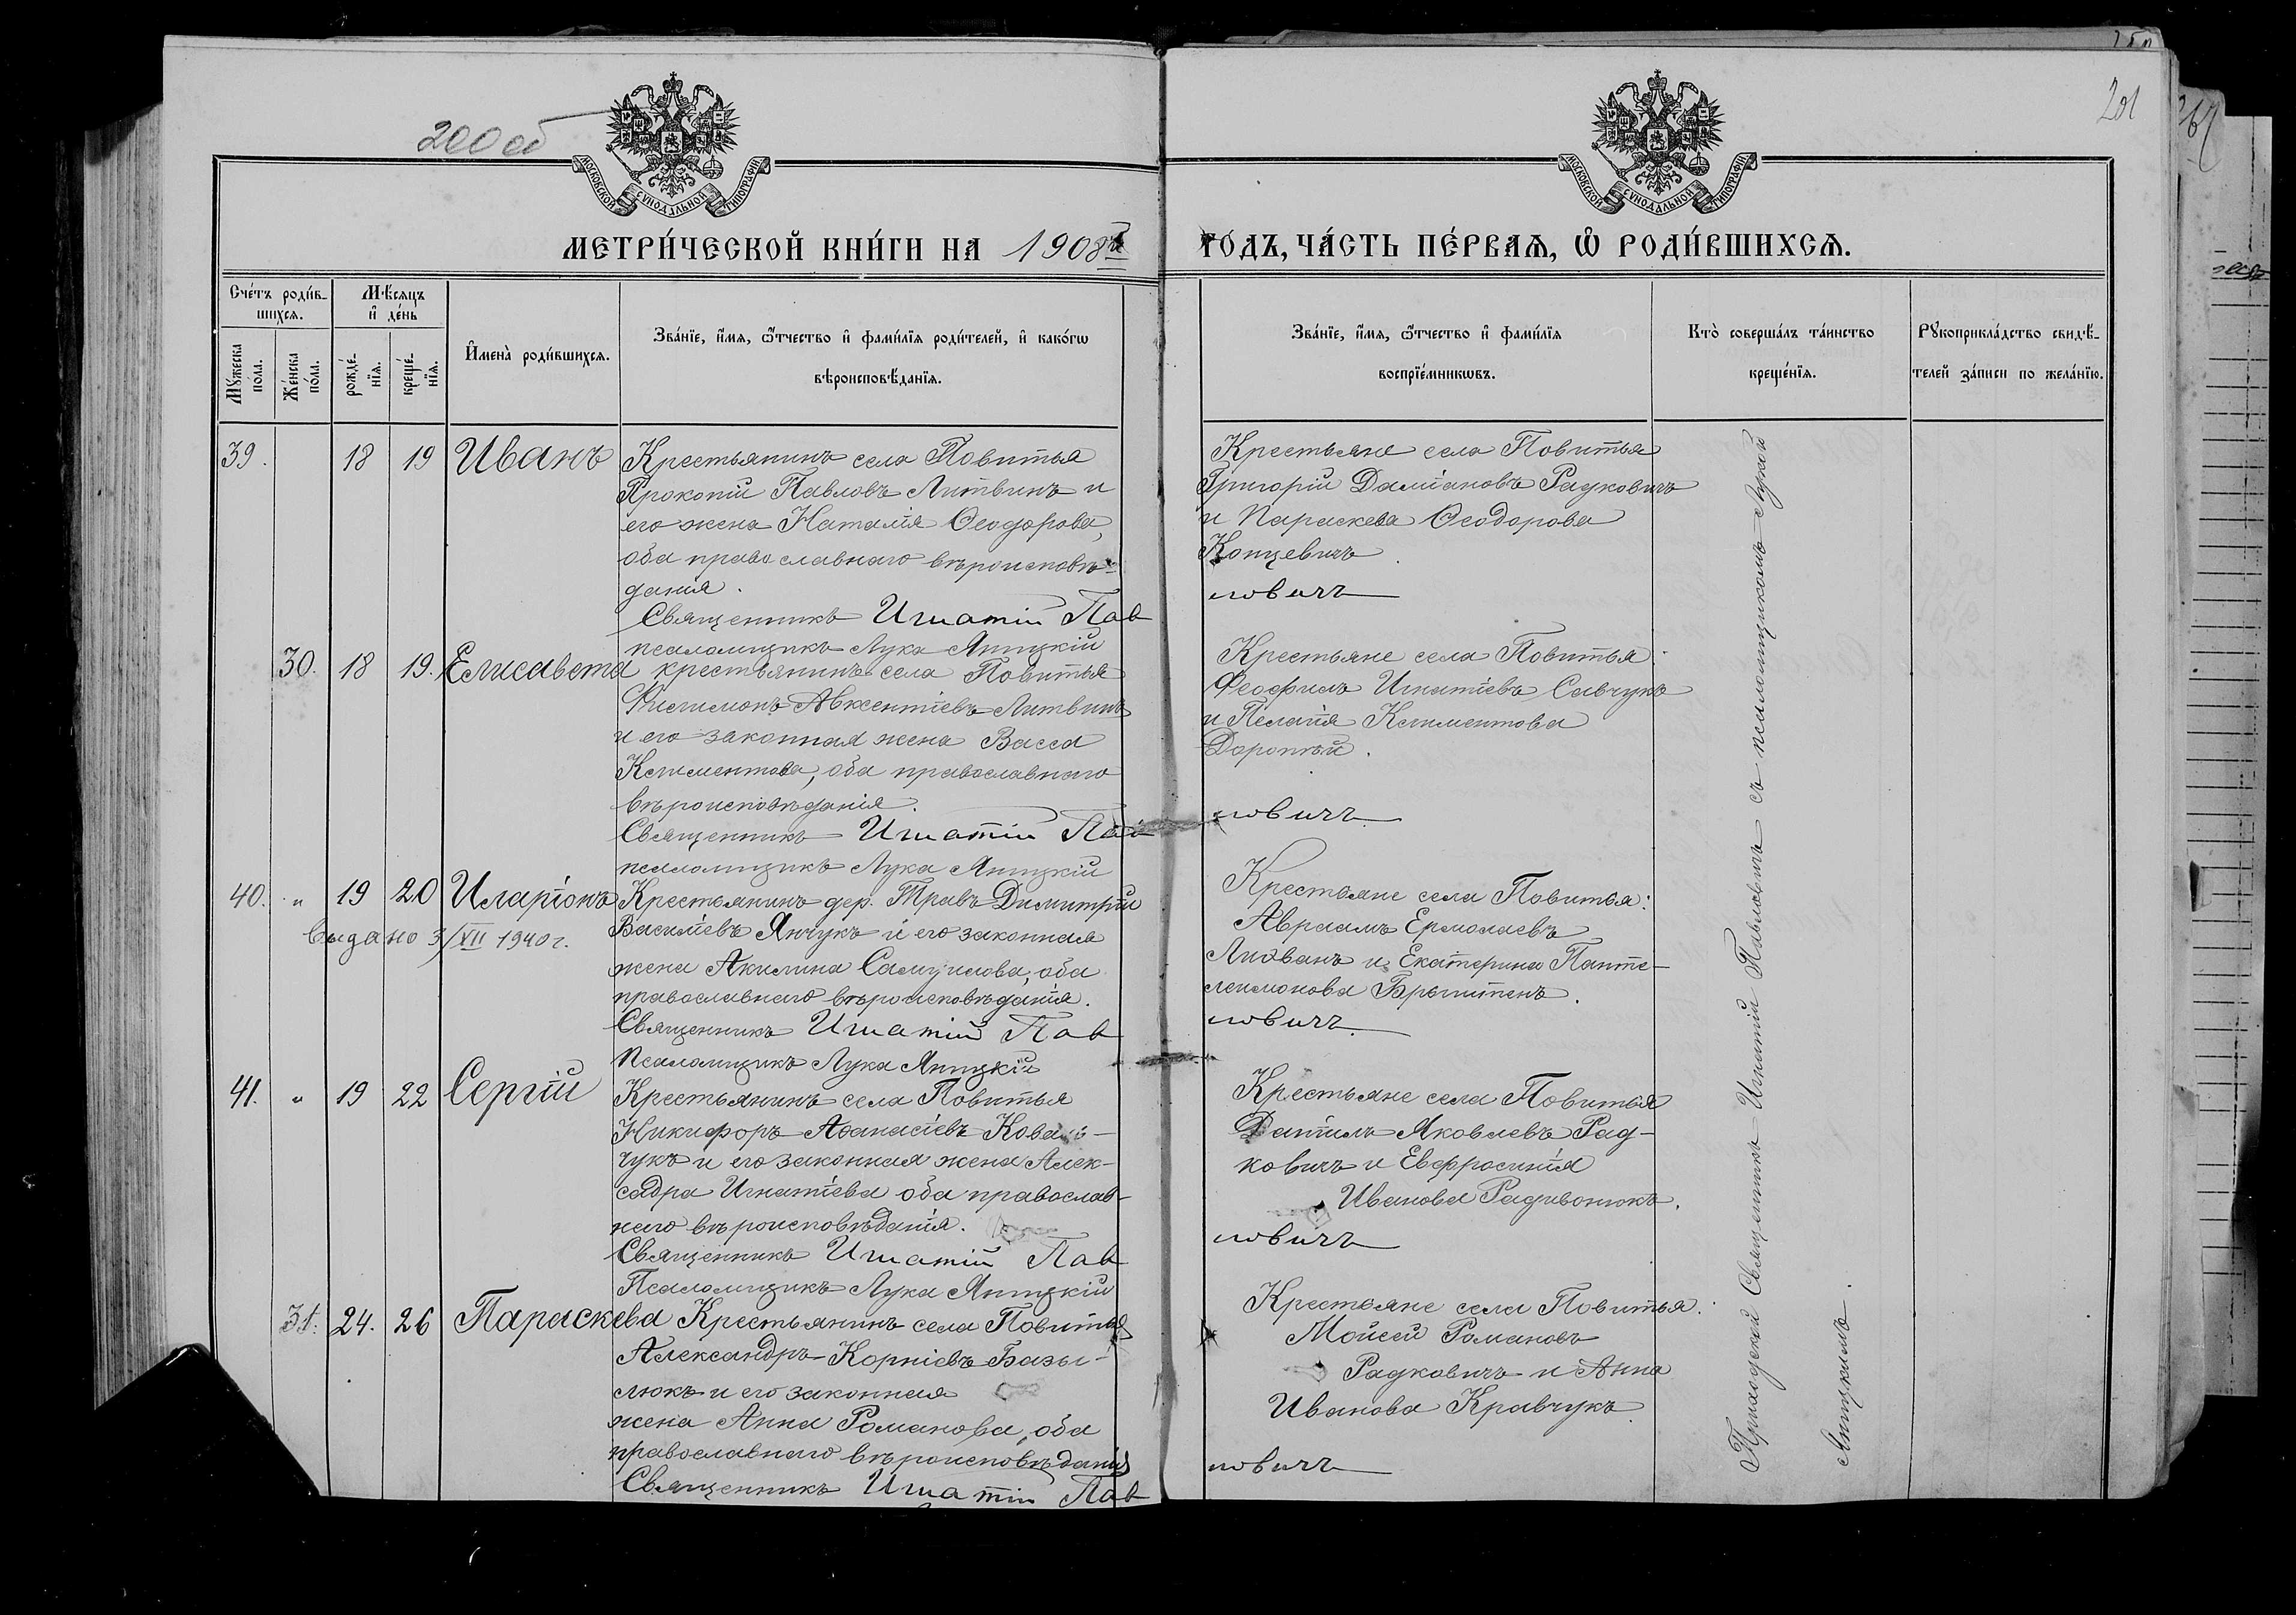 200 об
201
МОСКОВСКОЙ СѴНОДАЛЬНОЙ ТИПОГРАФІИ
МОСКОВСКОЙ СѴНОДАЛЬНОЙ ТИПОГРАФІИ
МЕТРИ́ЧЕСКОЙ КНИ́ГИ НА 1908й
ГО́ДЪ, ЧА́СТЬ ПЕ́РВАѦ, Ѡ҆ РОДИ́ВШИХСѦ.
Сче́тъ роди́в-
шихсѧ.
Мꙋ́жеска по́ла.
Же́нска по́ла.
Мѣ́сѧцъ
и҆ де́нь
рожде́-
нїѧ.
креще́-
нїѧ.
И҆мена̀ роди́вшихсѧ.
Зва́нїе, и҆́мѧ, ѻ҆́тчество и҆ фами́лїѧ роди́телей, и҆ како́гѡ
вѣроисповѣ́данїѧ.
Зва́нїе, и҆́мѧ, ѻ҆́тчество и҆ фами́лїѧ
воспрїе́мникѡвъ.
Кто̀ соверша́лъ та́инство
креще́нїѧ.
Рꙋкоприкла́дство свидѣ́-
телей за́писи по жела́нїю.
39. 18 19 Иванъ
Крестьянинъ села Повитья
Прокопій Павловъ Литвинъ и
его жена Наталія Ѳеодорова,
оба православнаго вѣроисповѣ-
данія.
Священникъ Игнатій Пав
псаломщикъ Лука Япицкій
Крестьяне села Повитья
Григорій Даміановъ Радковичъ
и Параскева Ѳеодорова
Концевичъ
ловичъ
30. 18 19. Елисавета
крестьянинъ села Повитья
Филимонъ Авксентіевъ Литвинъ
и его законная жена Васса
Климентова, оба православнаго
вѣроисповѣданія.
Священникъ Игнатій Пав
псаломщикъ Лука Япицкій
Крестьяне села Повитья:
Ѳеофилъ Игнатіевъ Савчукъ
и Пелагія Климентова
ловичъ
40. " 19 20 Иларіонъ
выдано 3/XII 1940 г.
Крестьянинъ дер. Травъ Димитрій
Василіевъ Янчукъ и его законная
жена Акилина Самуилова, оба
православнаго вѣроисповѣданія.
Священникъ Игнатій Пав
Псаломщикъ Лука Япицкій
Крестьяне села Повитья:
Авраамъ Ермолаевъ
и Екатерина Панте-
леимонова
ловичъ
41. " 19 22 Сергій
Крестьянинъ села Повитья
Никифоръ Аѳанасіевъ Коваль-
чукъ и его законная жена Алек-
садра Игнатіева оба православ-
наго вѣроисповѣданія.
Священникъ Игнатій Пав
Псаломщикъ Лука Япицкій
Крестьяне села Повитья
Даніилъ Яковлевъ Рад-
ковичъ и Евфросинія
Иванова Радивонюкъ.
ловичъ
31. 24. 26 Параскева
Крестьянинъ села Повитья
Александръ Корніевъ Базы-
люкъ и его законная
жена Анна Романова, оба
православнаго вѣроисповѣданія
Священникъ Игнатій Пав
Крестьяне села Повитья:
Мойсей Романовъ
Радковичъ и Анна
Иванова Кравчукъ
ловичъ
Приходской Священникъ Игнатій Павловичъ съ псаломщикомъ Лукой
Япицкимъ.